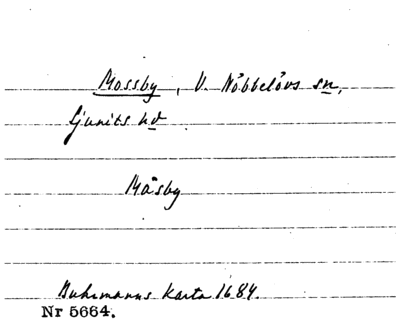 Mossby, V. Nöbbelövs sn,
Ljunits hd
Måsby
Buhrmanns Karta 1684.
Nr 5664.